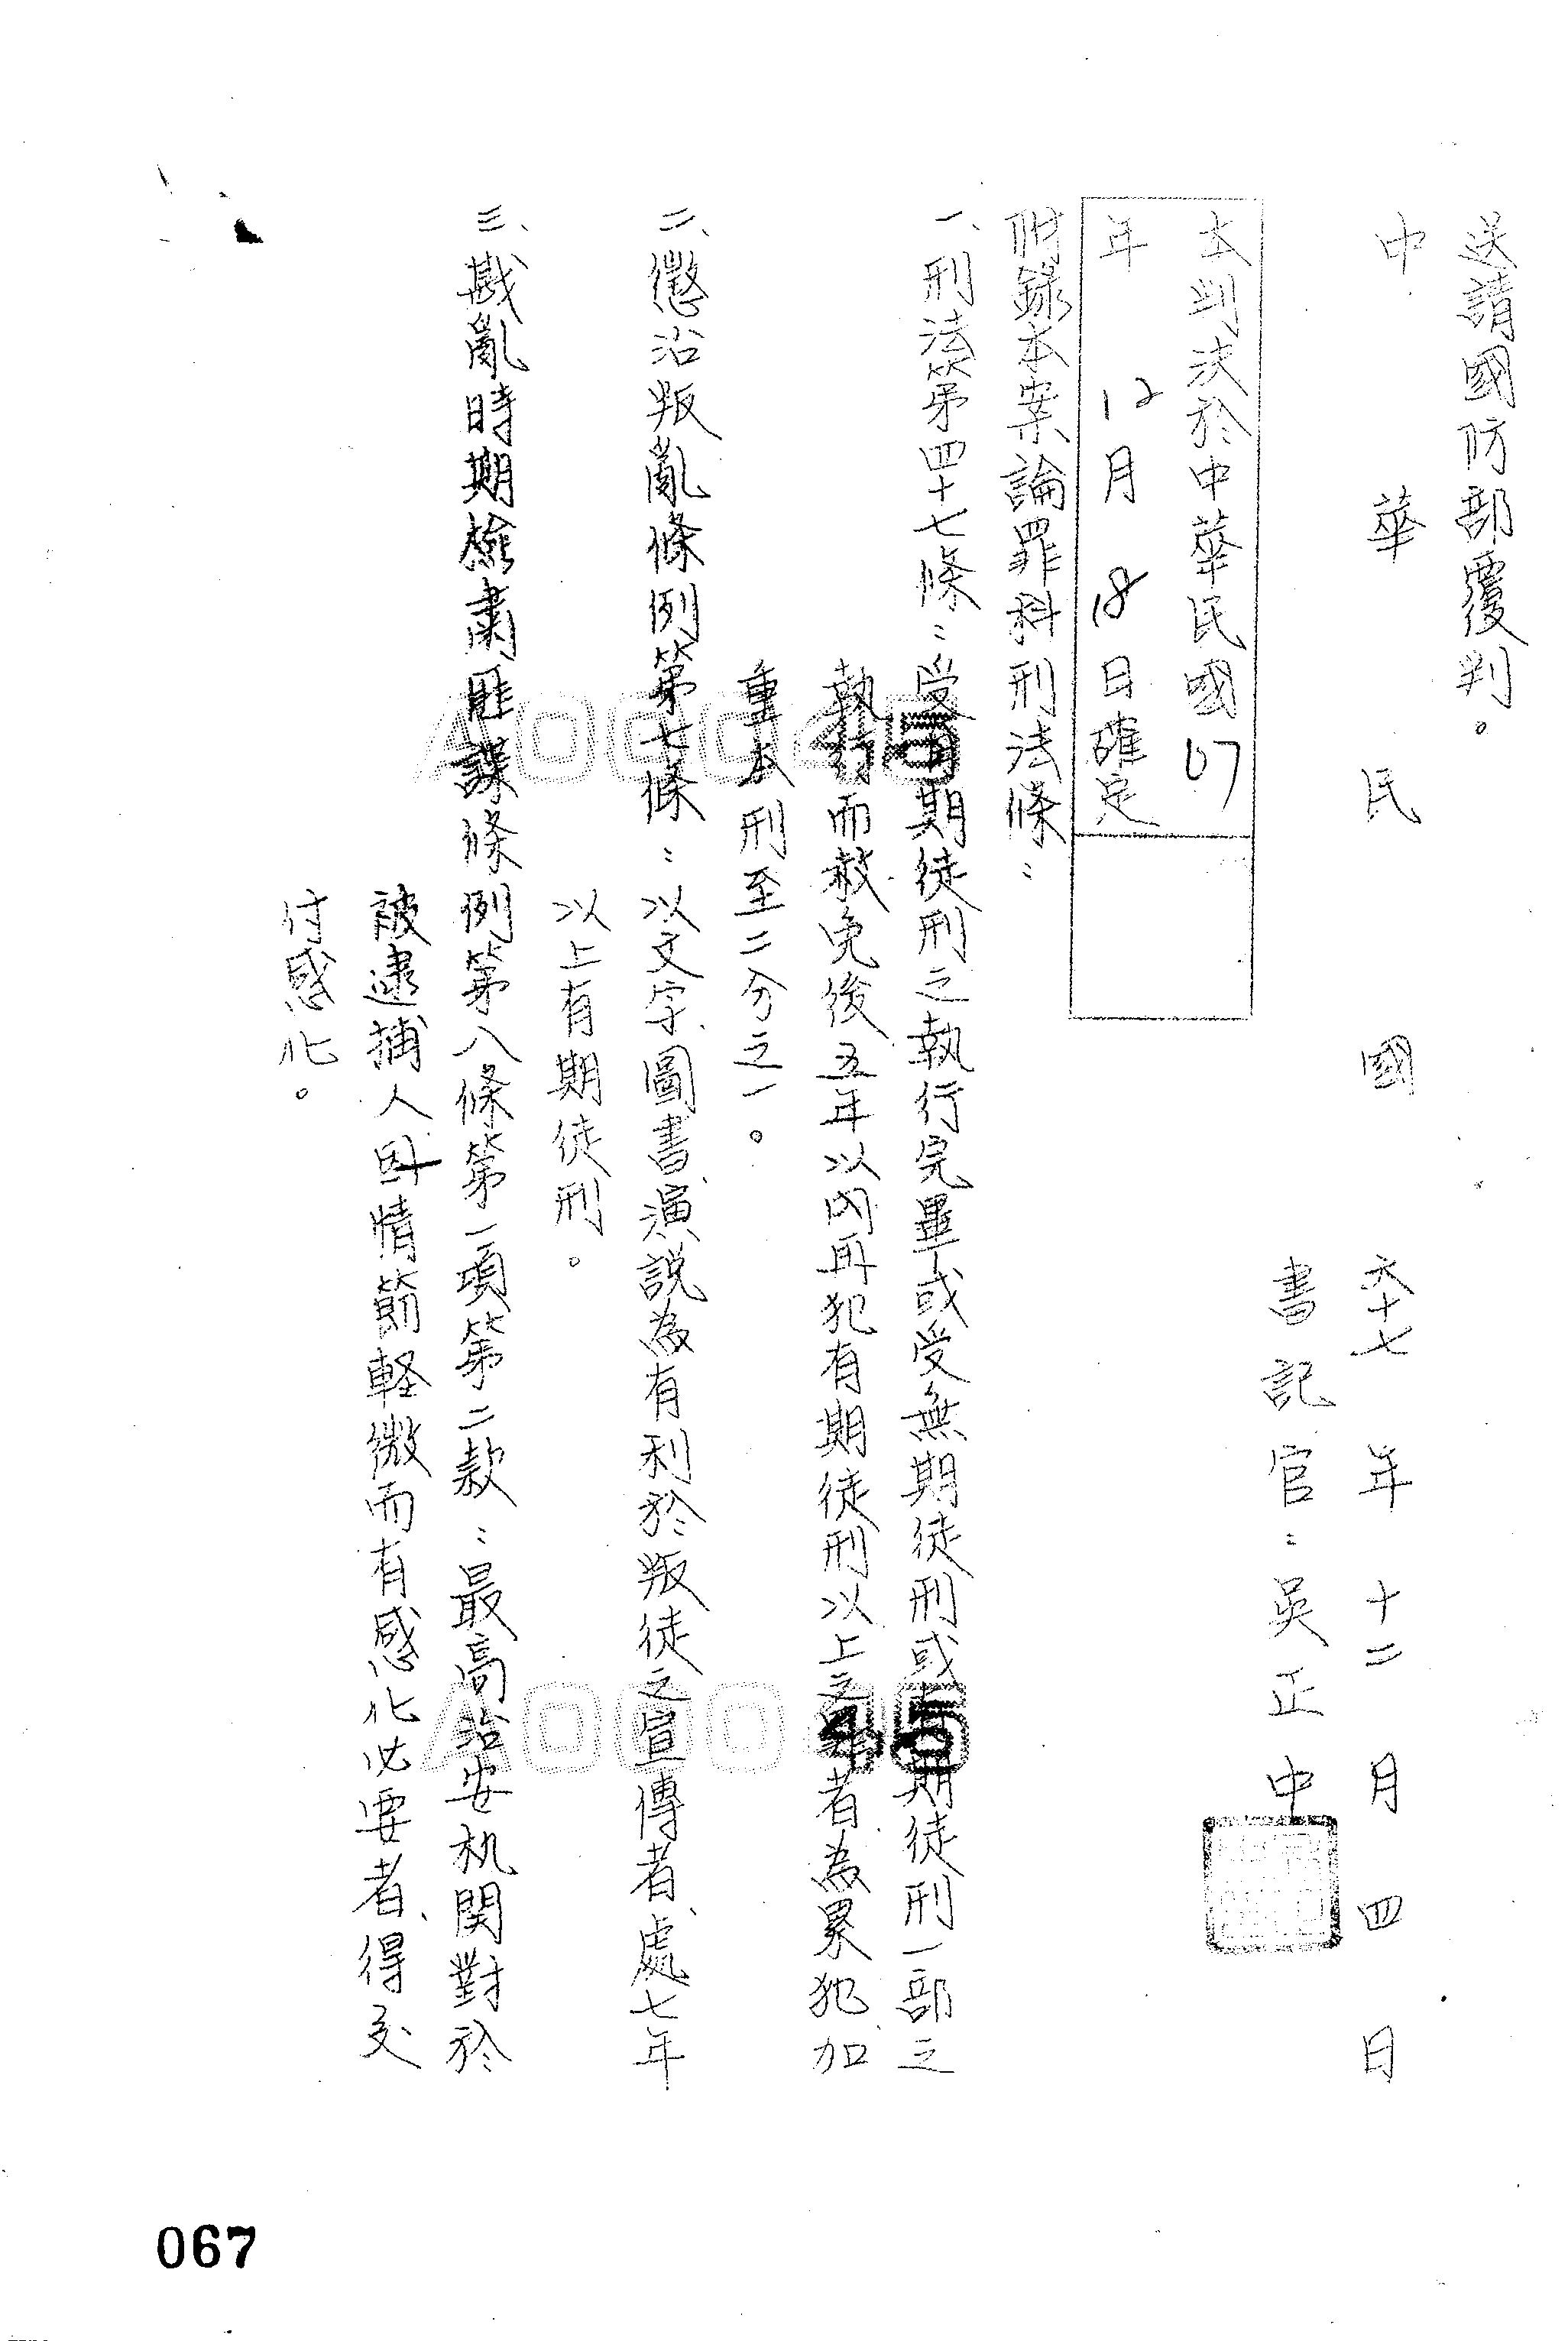 送請國防部覆判。
中華民國六十七年十二月四日
書記官:吳正中
本判決於中華民國67
年12月18日確定
附錄本案論罪科刑法條:
一、刑法第四十七條:受有期徒刑之執行完畢或受無期徒刑或有期徒刑一部之
執行而赦免後五年以內再犯有期徒刑以上之罪者為累犯、加
重本刑至二分之一。
二、懲治叛亂條例第七條:以文字、圖書、演說為有利於叛徒之宣傳者、處七年
以上有期徒刑。
三、戡亂時期檢肅匪諜條例第八條第一項第二款:最高治安机関對於
被逮捕人因情節軽微而有感化必要者、得交
付感化。
A000045
A000045
067